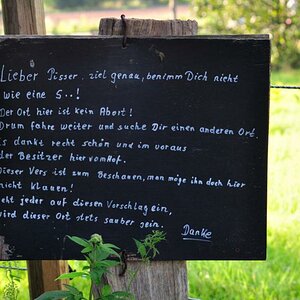 Lieber Pisser, ziel genau, benimm Dich nicht
wie eine S..!
Der Ort hier ist kein Abort!
Drum fahre weiter und suche Dir einen anderen Ort.
Es dankt recht schön und im voraus
der Besitzer hier vom Hof.
Dieser Vers ist zum Beschauen, man möge ihn doch hier
nicht klauen!
Geht jeder auf diesen Vorschlag ein,
wird dieser Ort stets sauber sein.
Danke